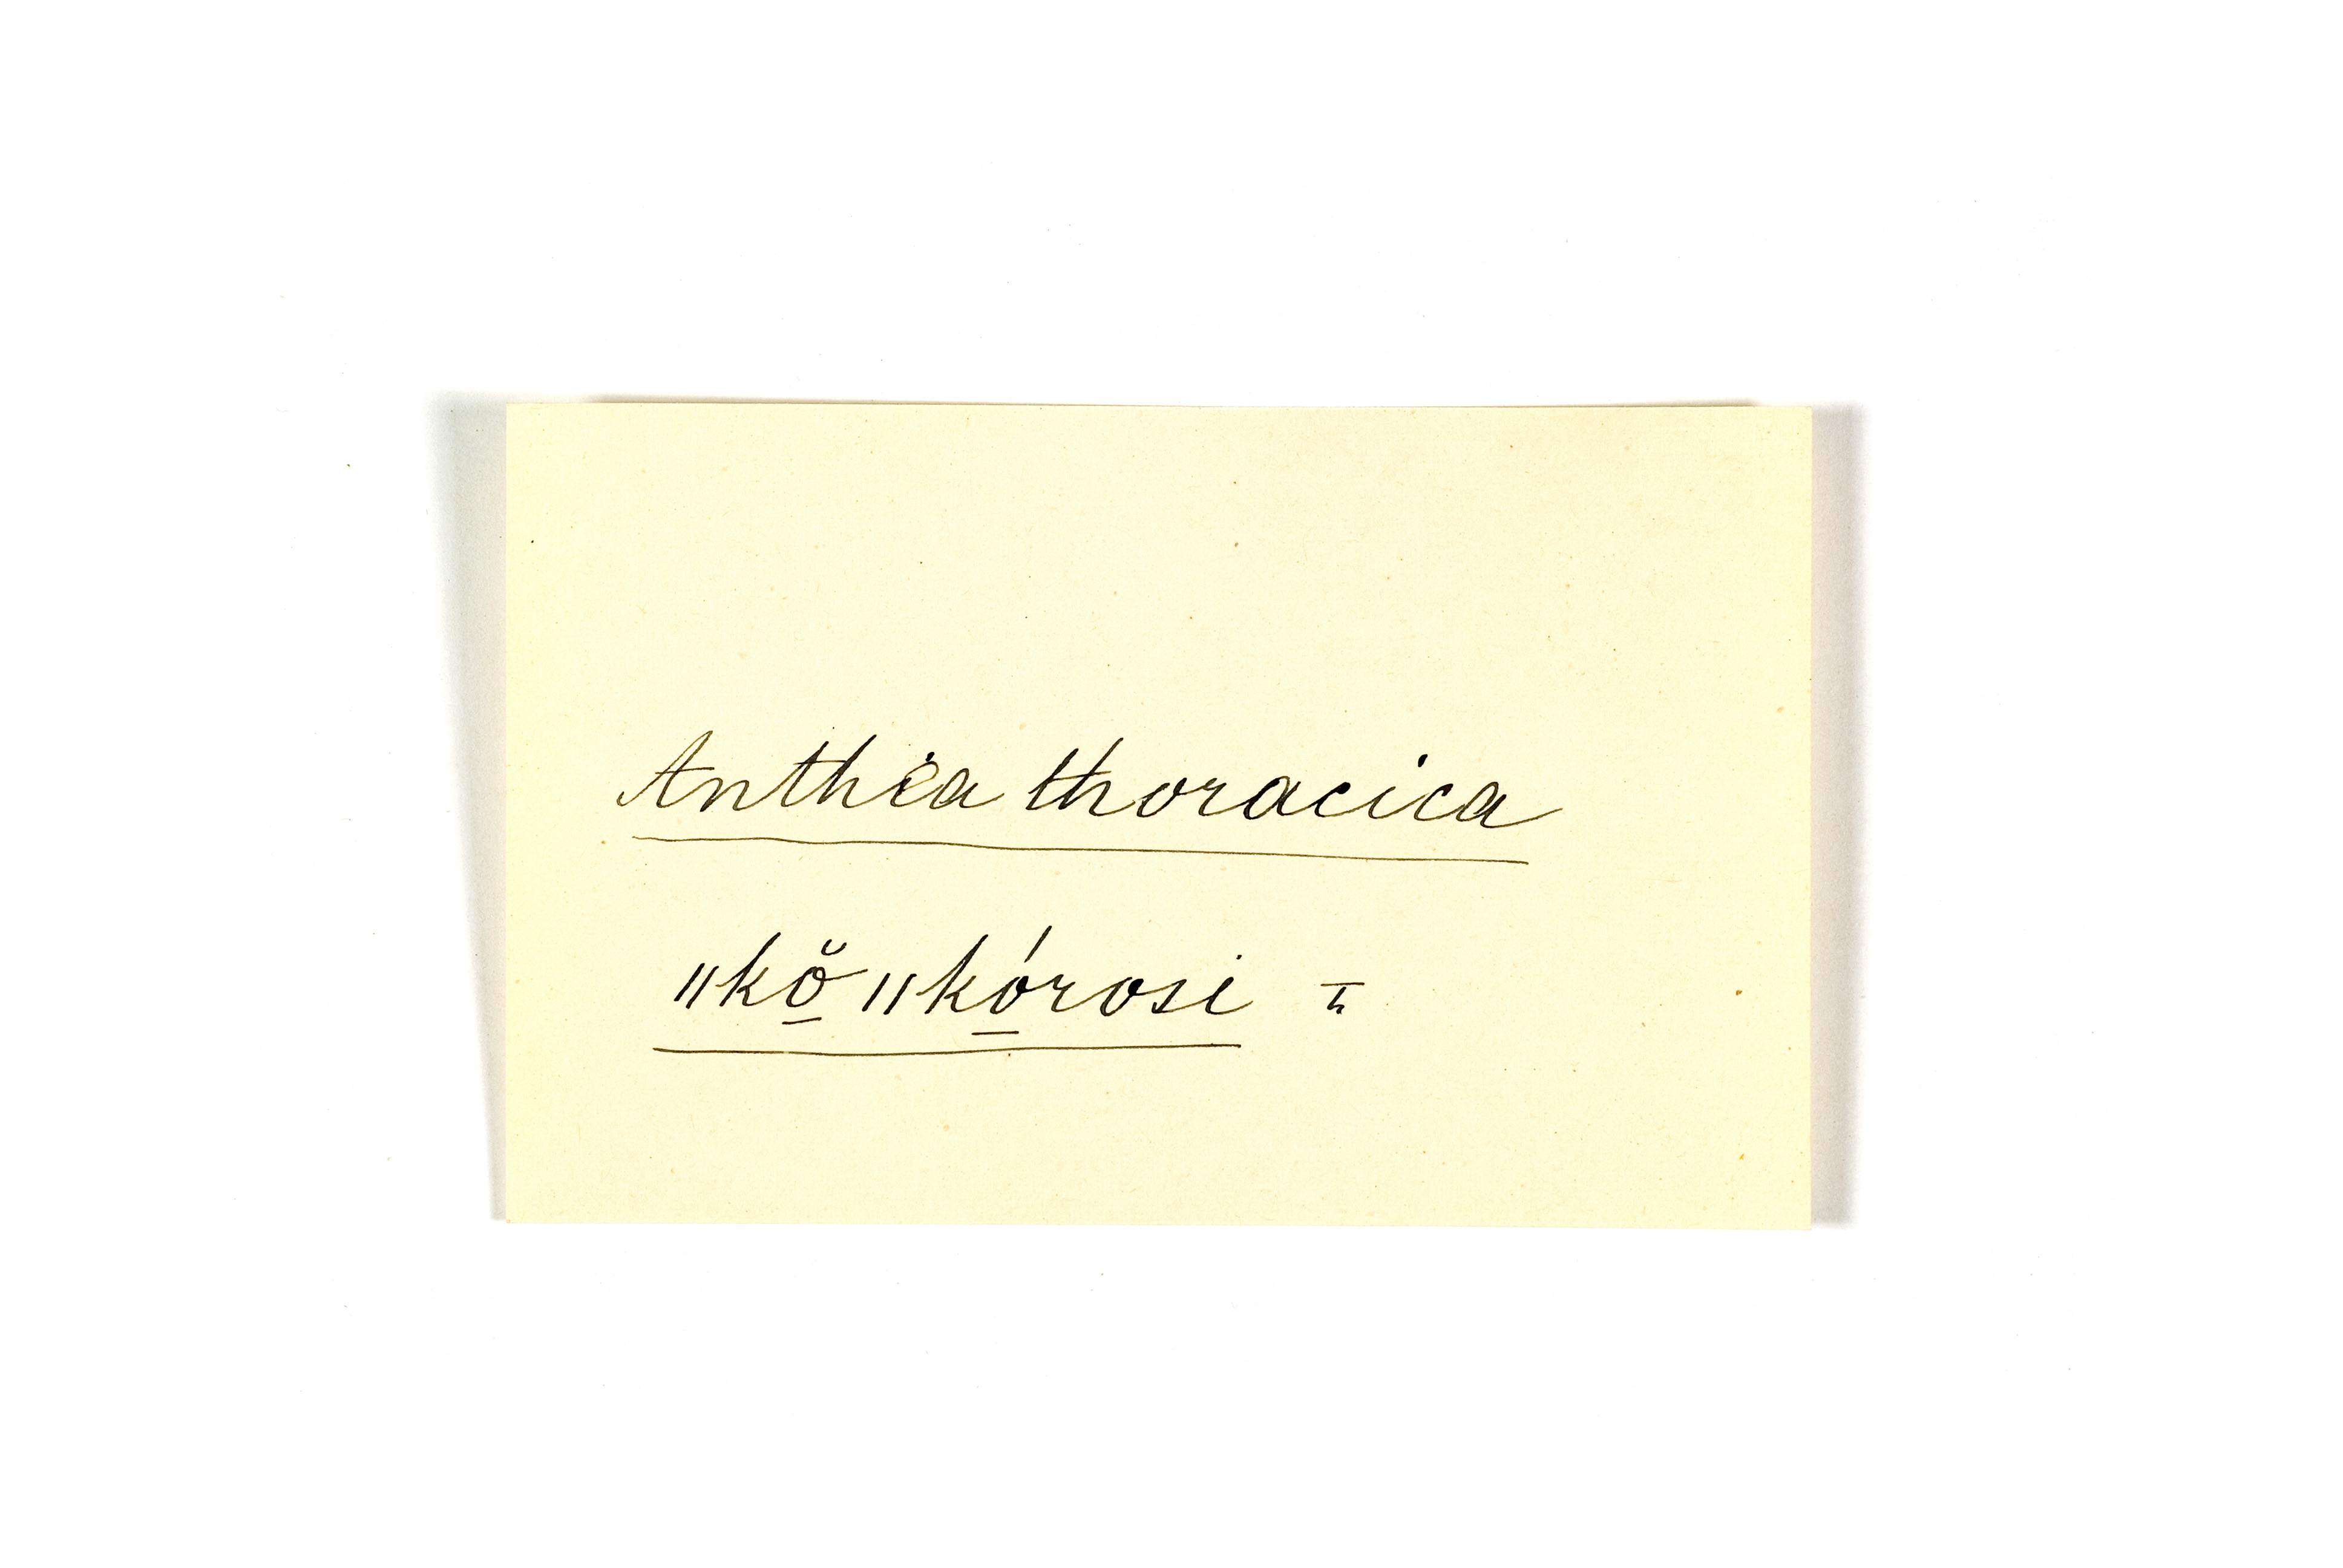 Anthia thoracica
"kŏ̱ "kó̱rosi I